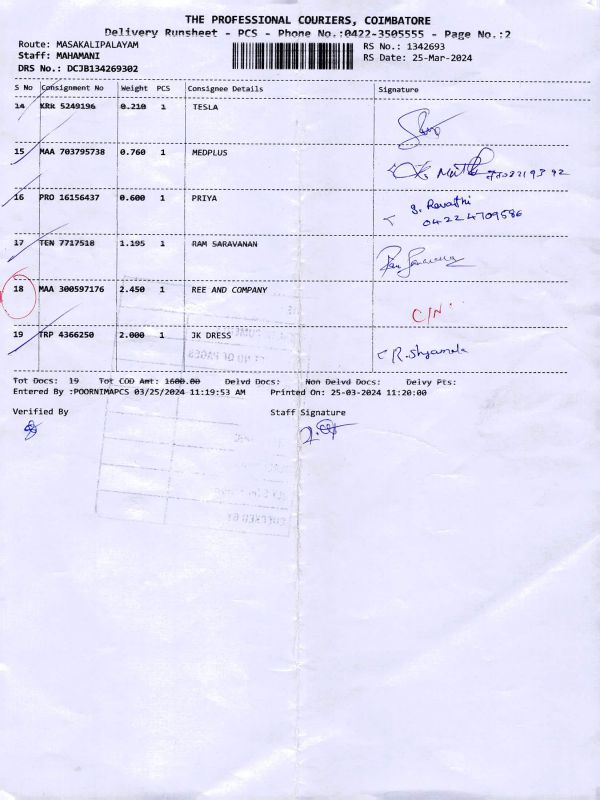 THE PROFESSIONAL COURIERS, COIMBATORE
Delivery Runsheet - PCS - Phone No.:0422-3505555 - Page No.:2
Route: MASAKALIPALAYAM
Staff: MAHAMANI
DRS No.: DCJB134269302
RS No.: 1342693
RS Date: 25-Mar-2024
S No Consignment No Weight PCS Consignee Details Signature
14 KRK 5249196 0.210 1 TESLA
15 MAA 703795738 0.760 1 MEDPLUS
16 PRO 16156437 0.600 1 PRIYA S. Revathi
0422 4709586
17 TEN 7717518 1.195 1 RAM SARAVANAN
18 MAA 300597176 2.450 1 REE AND COMPANY C/N
19 TRP 4366250 2.000 1 JK DRESS R. Shyamala
Tot Docs: 19 Tot COD Amt: 1600.00 Delvd Docs: Non Delvd Docs: Delvy Pts:
Entered By :POORNIMAPCS 03/25/2024 11:19:53 AM Printed On: 25-03-2024 11:20:00
Verified By Staff Signature
CHECKED BY